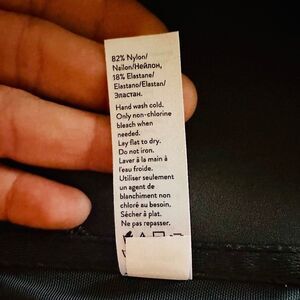 82% Nylon/
Nailon/Нейлон,
18% Elastane/
Elastano/Elastan/
Эластан.
Hand wash cold.
Only non-chlorine
bleach when
needed.
Lay flat to dry.
Do not iron.
Laver à la main à
l'eau froide.
Utiliser seulement
un agent de
blanchiment non
chloré au besoin.
Sécher à plat.
Ne pas repasser.